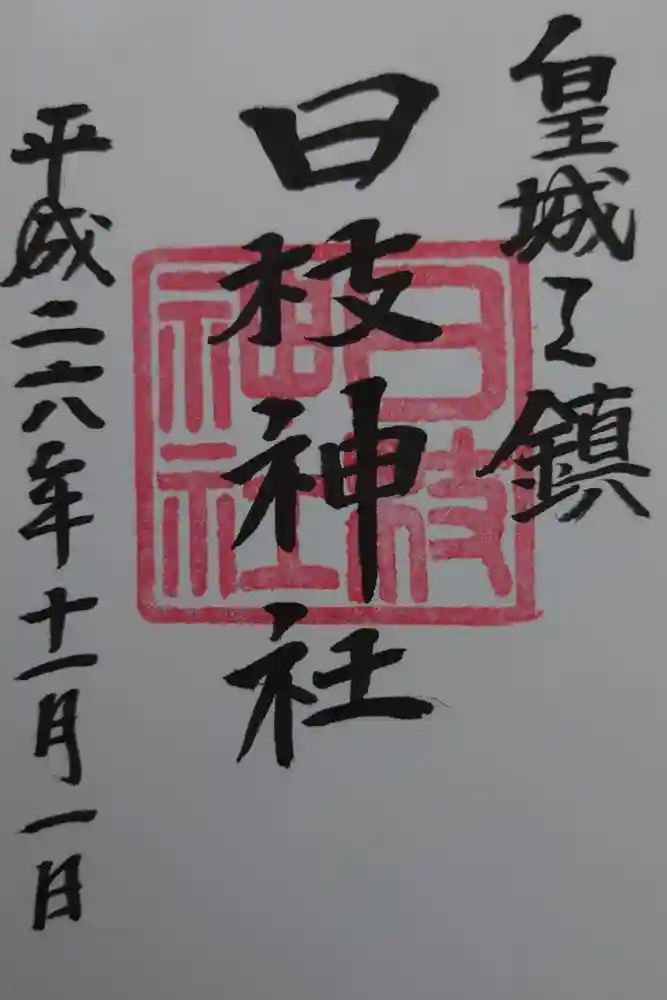 皇城之鎮
日枝神社
日枝
神社
平成二六年十一月一日